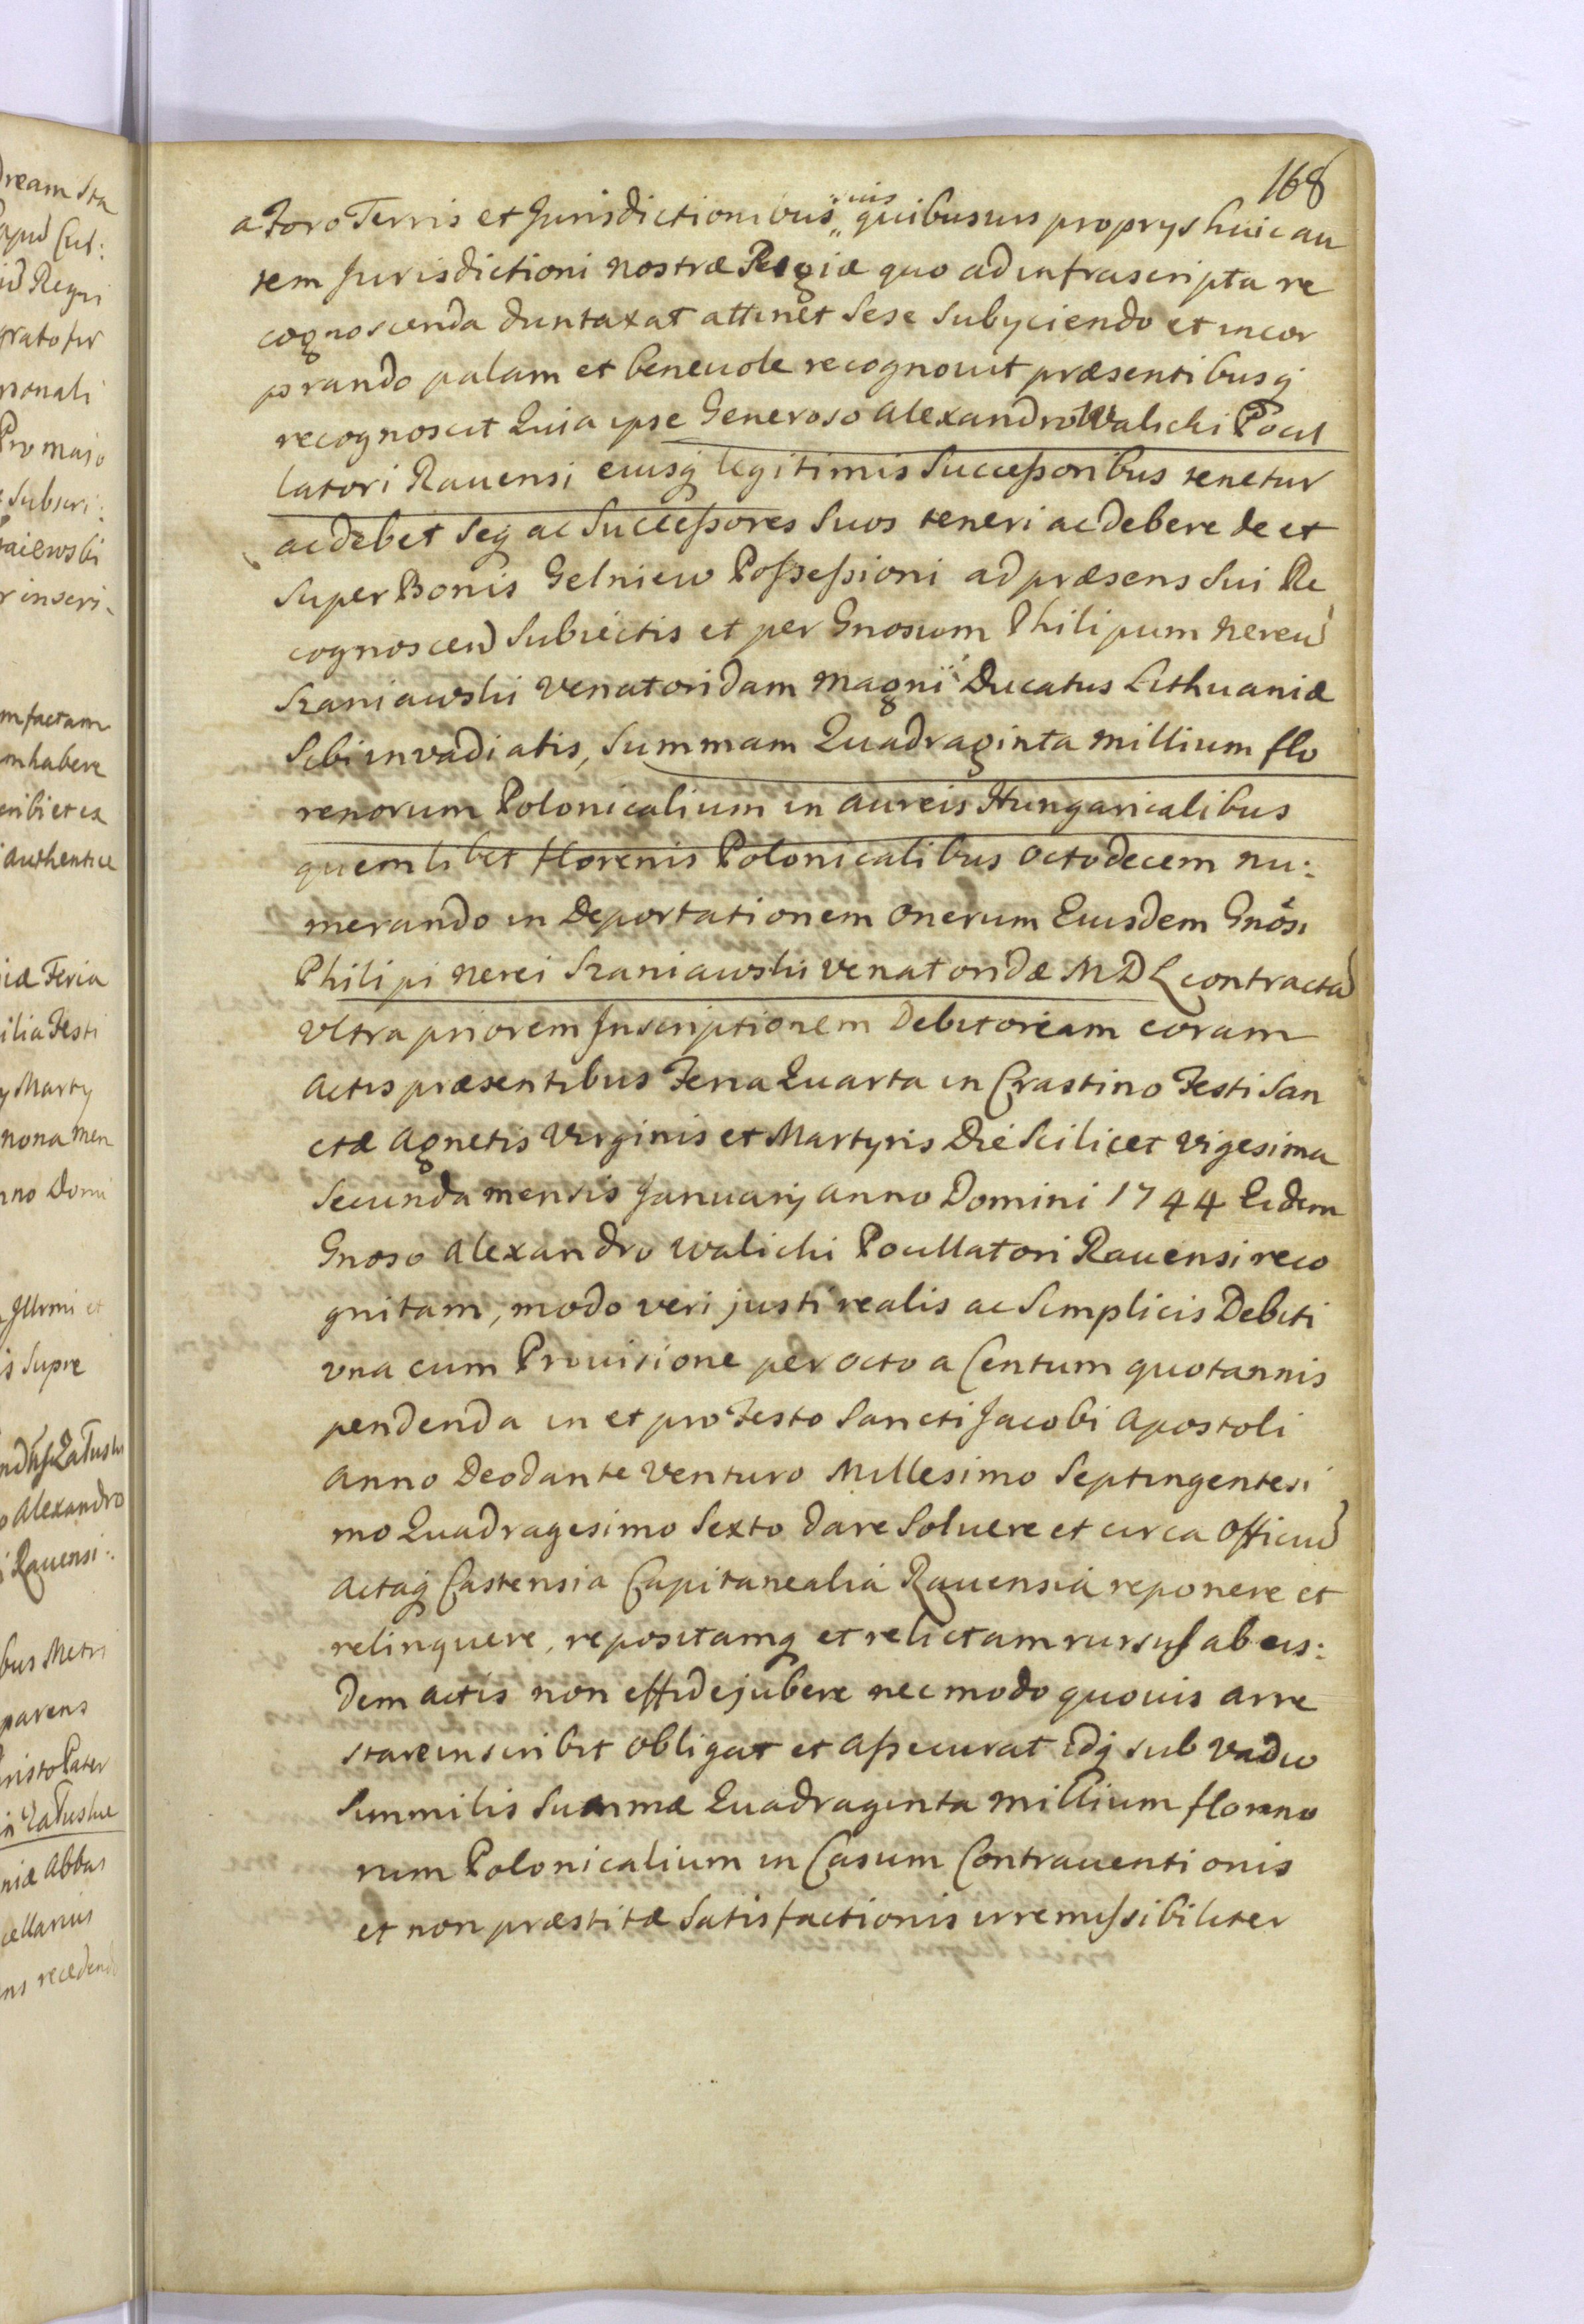 168
a Foro Terris et Jurisdictionibus suis quibusuis proprys huic au
tem Jurisdictioni nostræ Regiæ quo ad infrascripta re
cognoscenda duntaxat attinet Sese Subyciendo et incor
porando palam et beneuole recognouit præsentibusq
recognoscit Quia ipse Generoso Alexandro Walicki Pocil
latori Rauensi eiusq legitimis Successoribus tenetur
ac debet Seq ac Successores Suos teneri ac debere de et
Super Bonis Gelniew Possessioni ad præsens Sui Re
cognoscen Subiectis et per Gnosum Philipum Nereu
Szaniawski Venatoridam Magni Ducatus Lithuaniæ
Sibi invadiatis, Summam Quadraginta Millium flo
renorum Polonicalium in aureis Hungaricalibus
quemlibet florenis Polonicalibus Octodecem nu:
merando in Deportationem Onerum Eiusdem Gnosi
Philipi Nerei Szaniawski Venatoridæ MDL contracta
Vltra priorem Inscriptionem Debitoream coram
Actis præsentibus Feria Quarta in Crastino Festi San
ctæ Agnetis Virginis et Martyris Die Scilicet Vigesima
Secunda mensis January Anno Domini 1744 Eidem
Gnoso Alexandro Walicki Pocillatori Rauensi reco
gnitam, modo veri justi realis ac Simplicis Debiti
vna cum Prouisione per octo a Centum quotannis
pendenda in et pro Festo Sancti Jacobi Apostoli
Anno Deodante Venturo Millesimo Septingentesi
mo Quadragesimo Sexto dare Soluere et circa Officiu
Actaq Castensia Capitanealia Rauensia reponere et
relinquere, repositamq et relictam rursus ab eis:
dem actis non effidejubere nec modo quouis arre
stare inscribit obligat et assecurat idq sub vadio
Simmilis Summæ Quadraginta Millium floreno
rum Polonicalium in Casum Contrauentionis
et non præstitæ Satisfactionis irremissibiliter